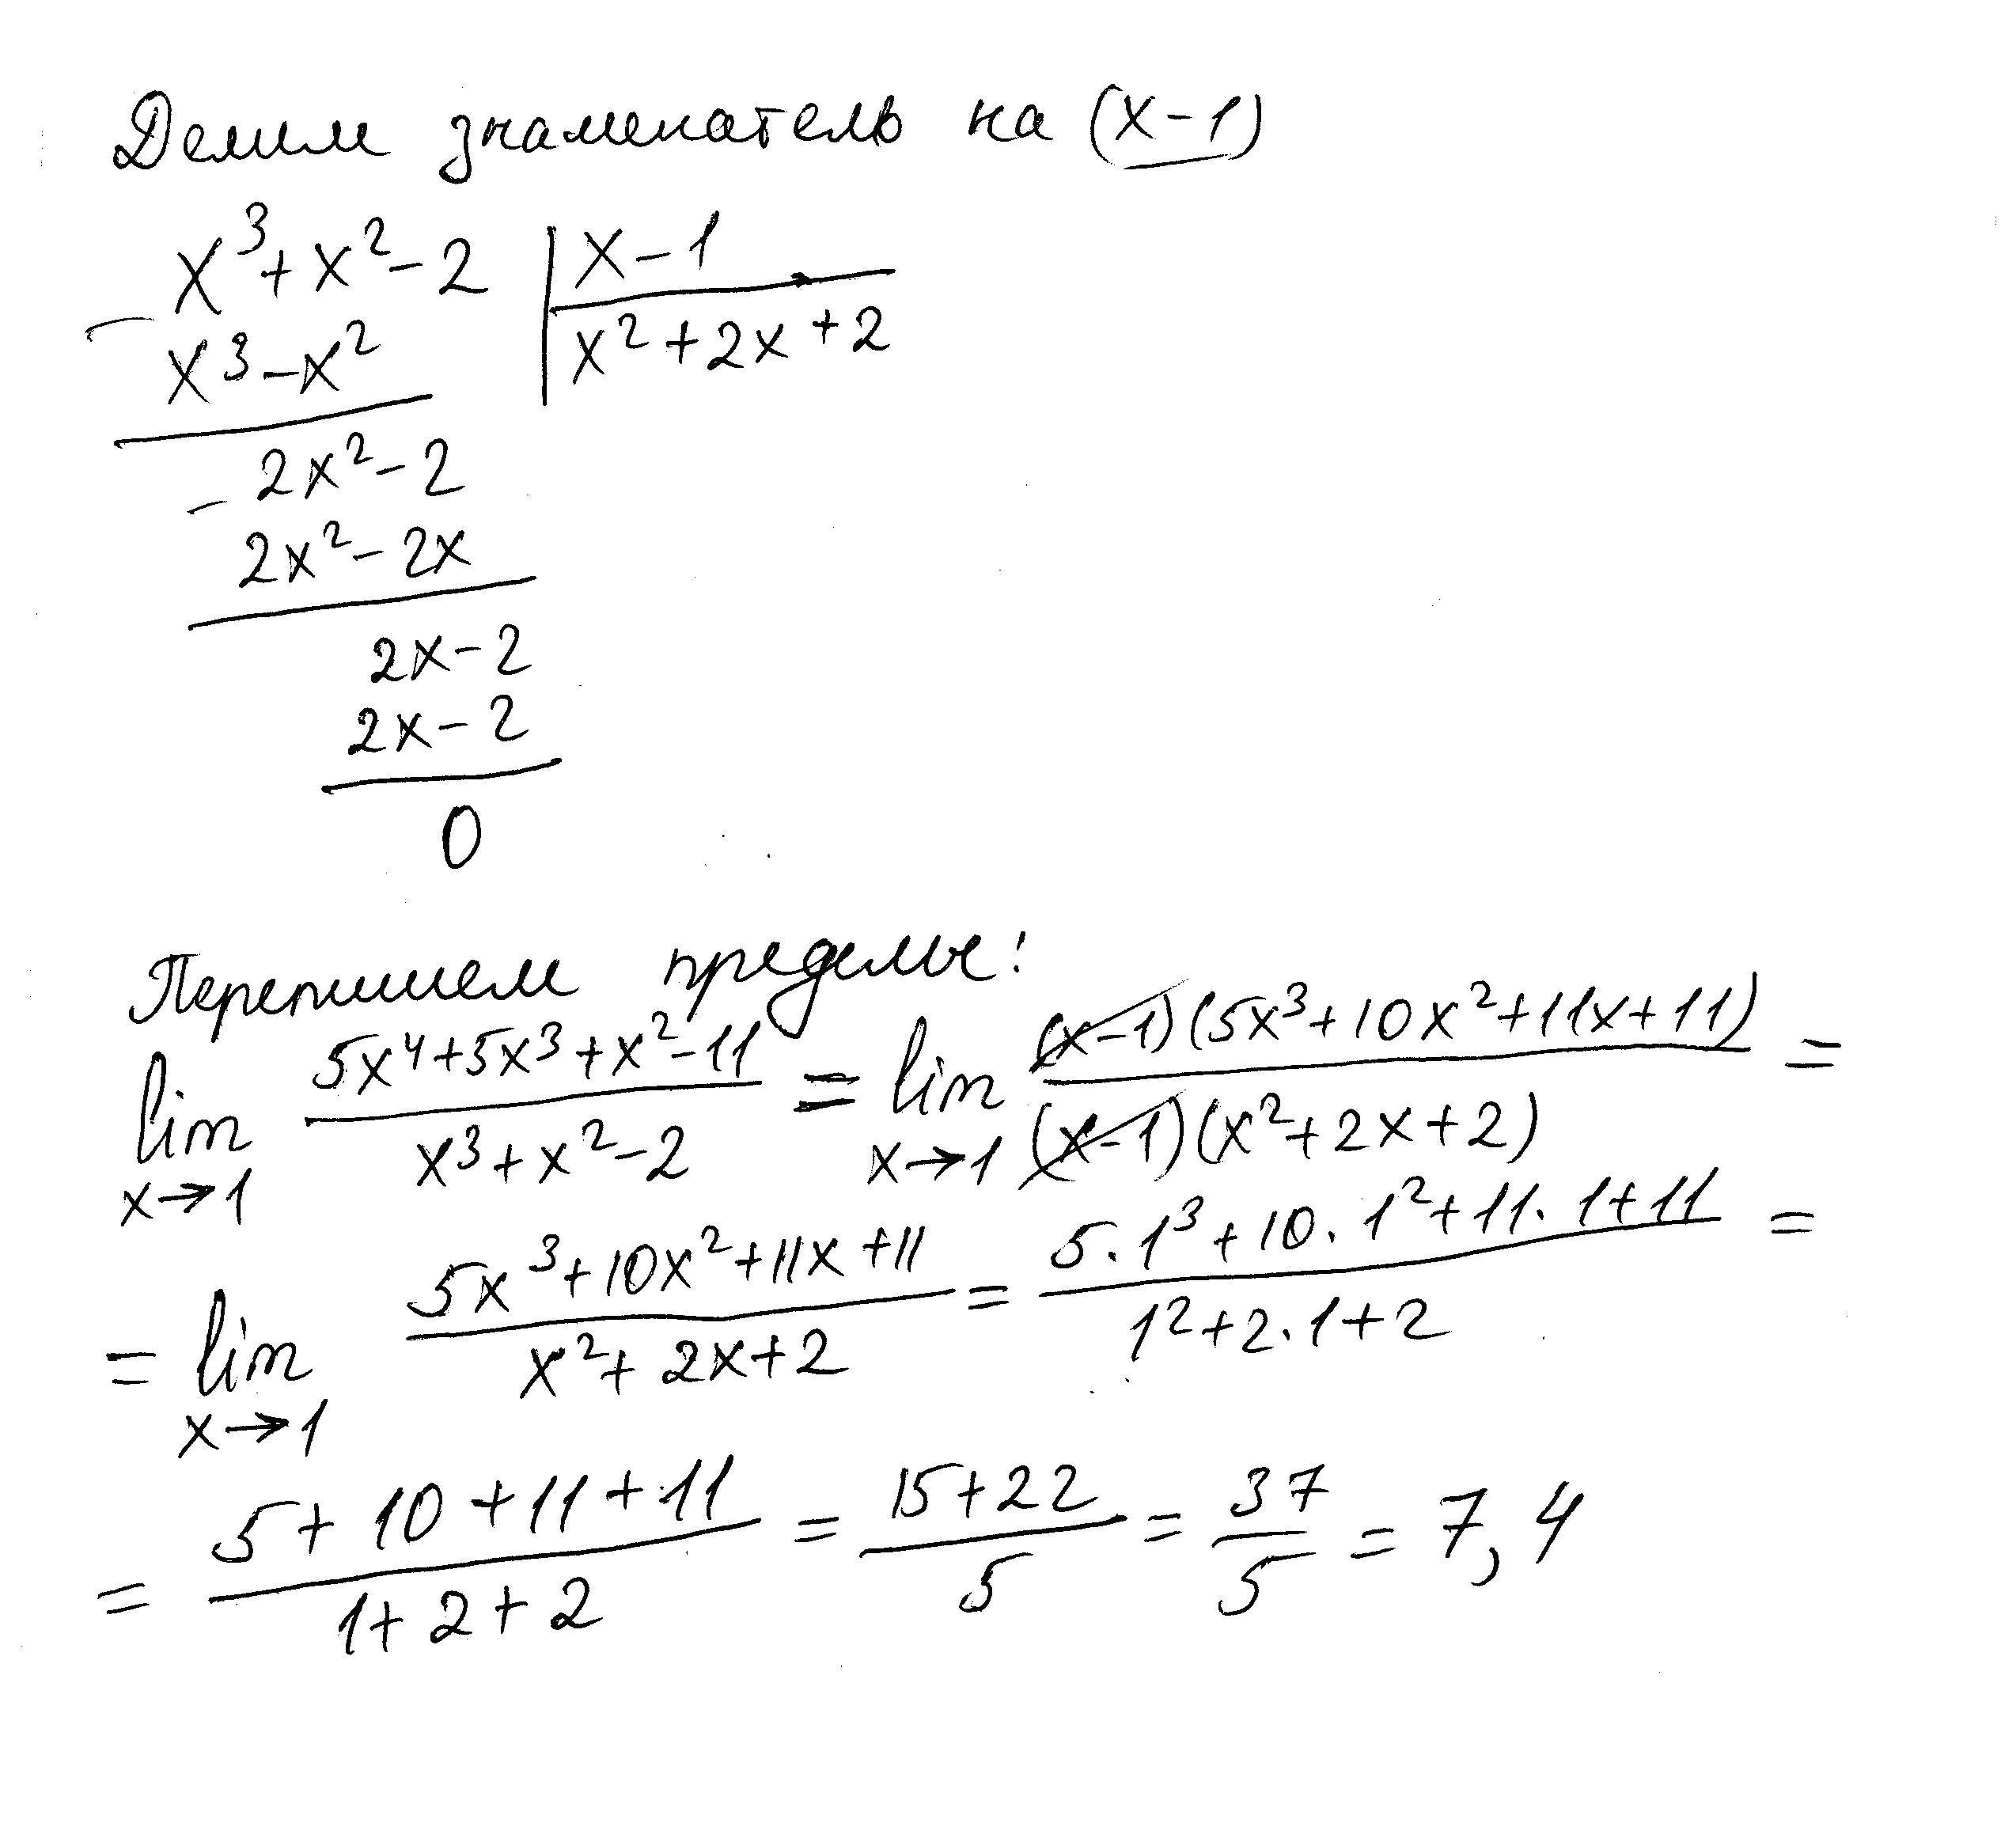 Делим знаменатель на (x-1)
x³+x²-2 | x-1
- x³-x² | x²+2x+2
2x²-2
- 2x²-2x
2x-2
2x-2
0
Перепишем пределы:
lim x→1 (5x⁴+5x³+x²-11)/(x³+x²-2) = lim x→1 ((x-1)(5x³+10x²+11x+11))/((x-1)(x²+2x+2)) =
= lim x→1 (5x³+10x²+11x+11)/(x²+2x+2) = (5·1³+10·1²+11·1+11)/(1²+2·1+2) =
= (5+10+11+11)/(1+2+2) = (15+22)/5 = 37/5 = 7,4